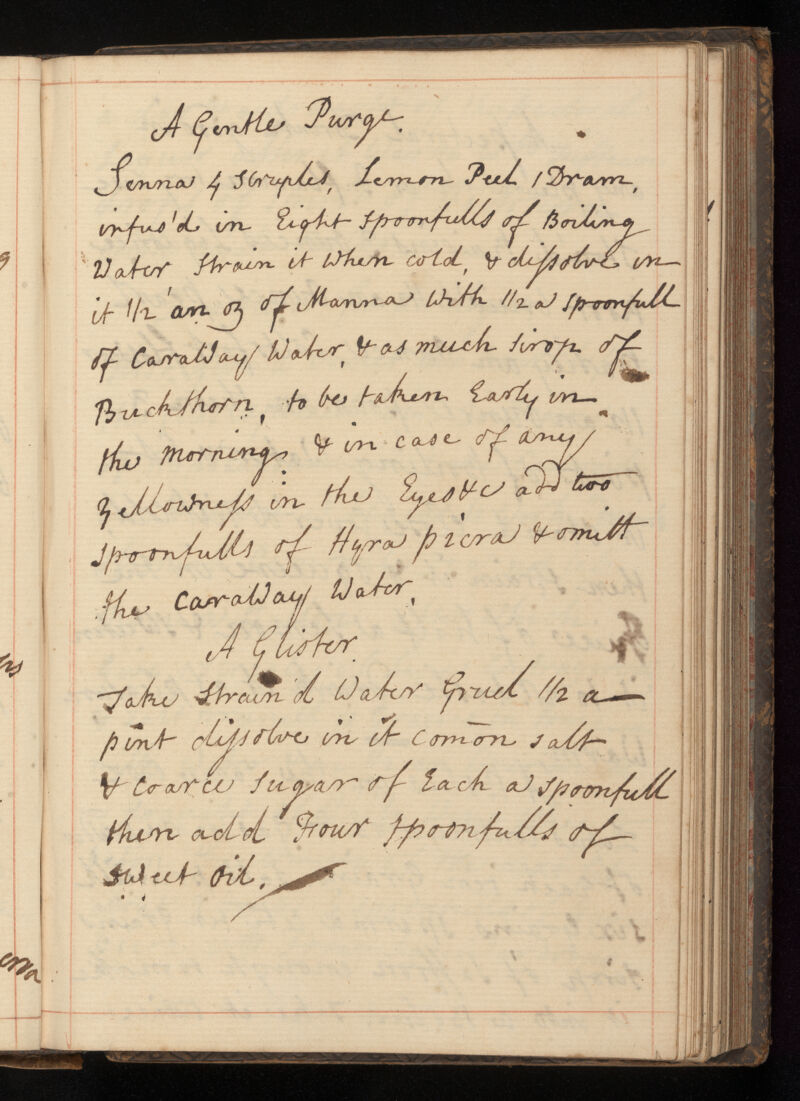 A Gentle Purge.
Senna 4 scruples, Lemon Peel 1 Dram,
infus'd in Eight spoonfulls of Boiling
Water strain it when cold, & dissolve in
it 1/2 an oz of Manna with 1/2 a spoonfull
of Caraway Water, & as much sirop of
Buckthorn, to be taken Early in
the morning, & in case of any
yellowness in the Eyes &c add two
spoonfulls of Hyra picra & omitt
the Caraway Water.
A Glister.
Take strain'd Water Gruel 1/2 a
pint dissolve in it com̄on salt
& coarce sugar of Each a spoonfull
then add Four spoonfulls of
sweet oil.